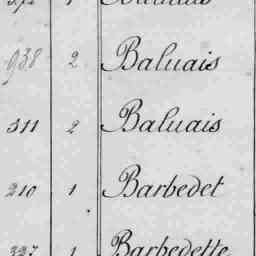 938 2 Baluais
311 2 Baluais
210 1 Barbedet
327 1 Barbedette